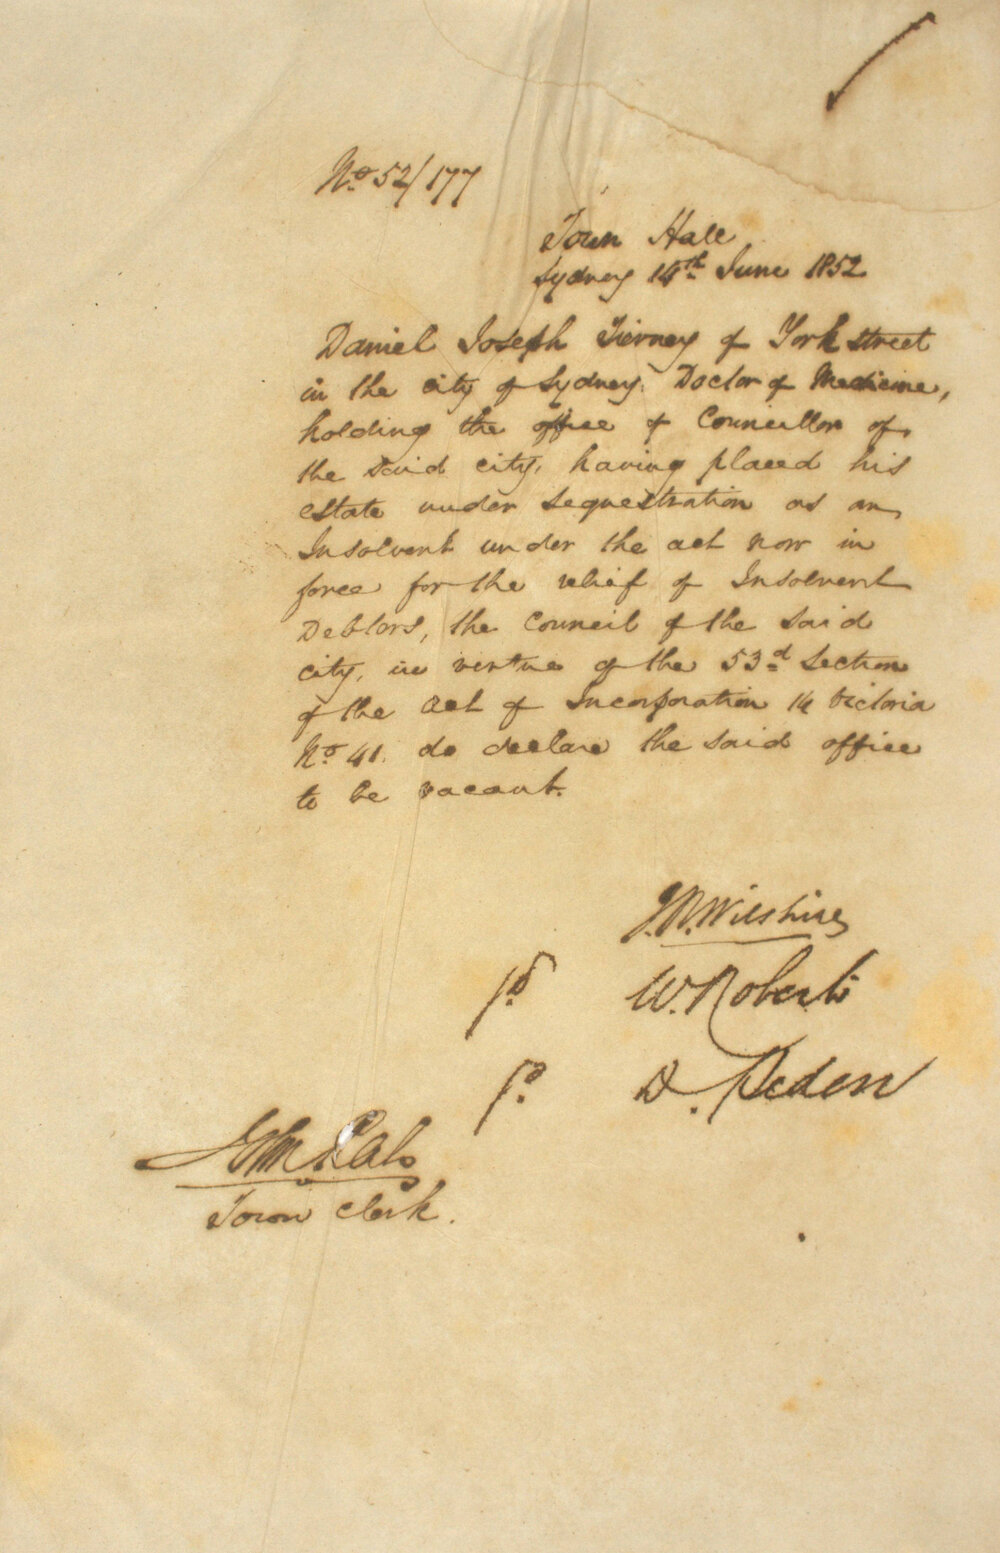 No. 52/177
Town Hall
Sydney 14th June 1852
Daniel Joseph Tierney of York street
in the city of Sydney, Doctor of Medicine,
holding the office of Councillor of
the said city, having placed his
estate under sequestration as an
Insolvent under the act now in
force for the relief of Insolvent
Debtors, the Council of the said
city, in virtue of the 53d Section
of the Act of Incorporation 14 Victoria
No. 41. do declare the said office
to be vacant.
J.R. Wilshire
W. Roberts
D. Peden
John Rae
Town Clerk.